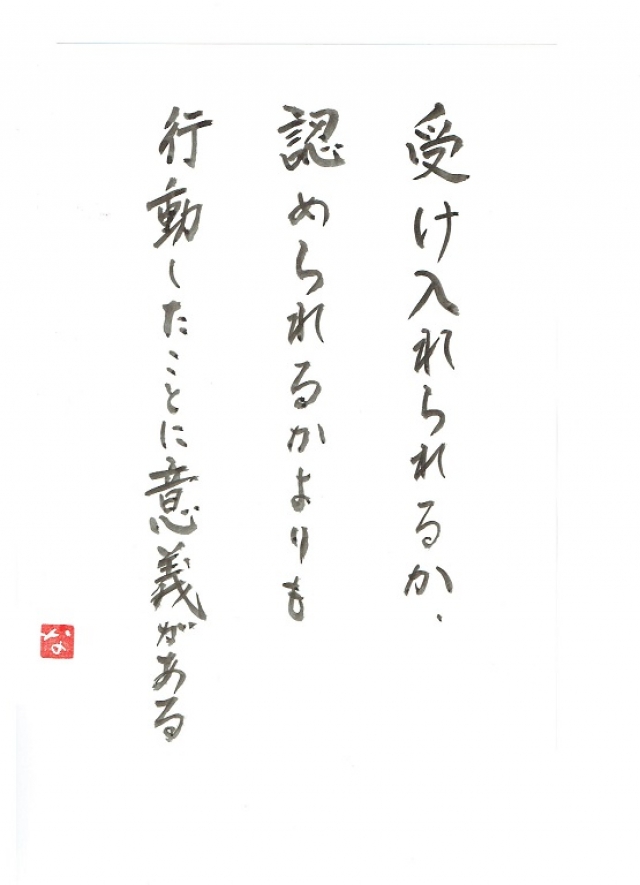 受け入れられるか、
認められるかよりも
行動したことに意義がある